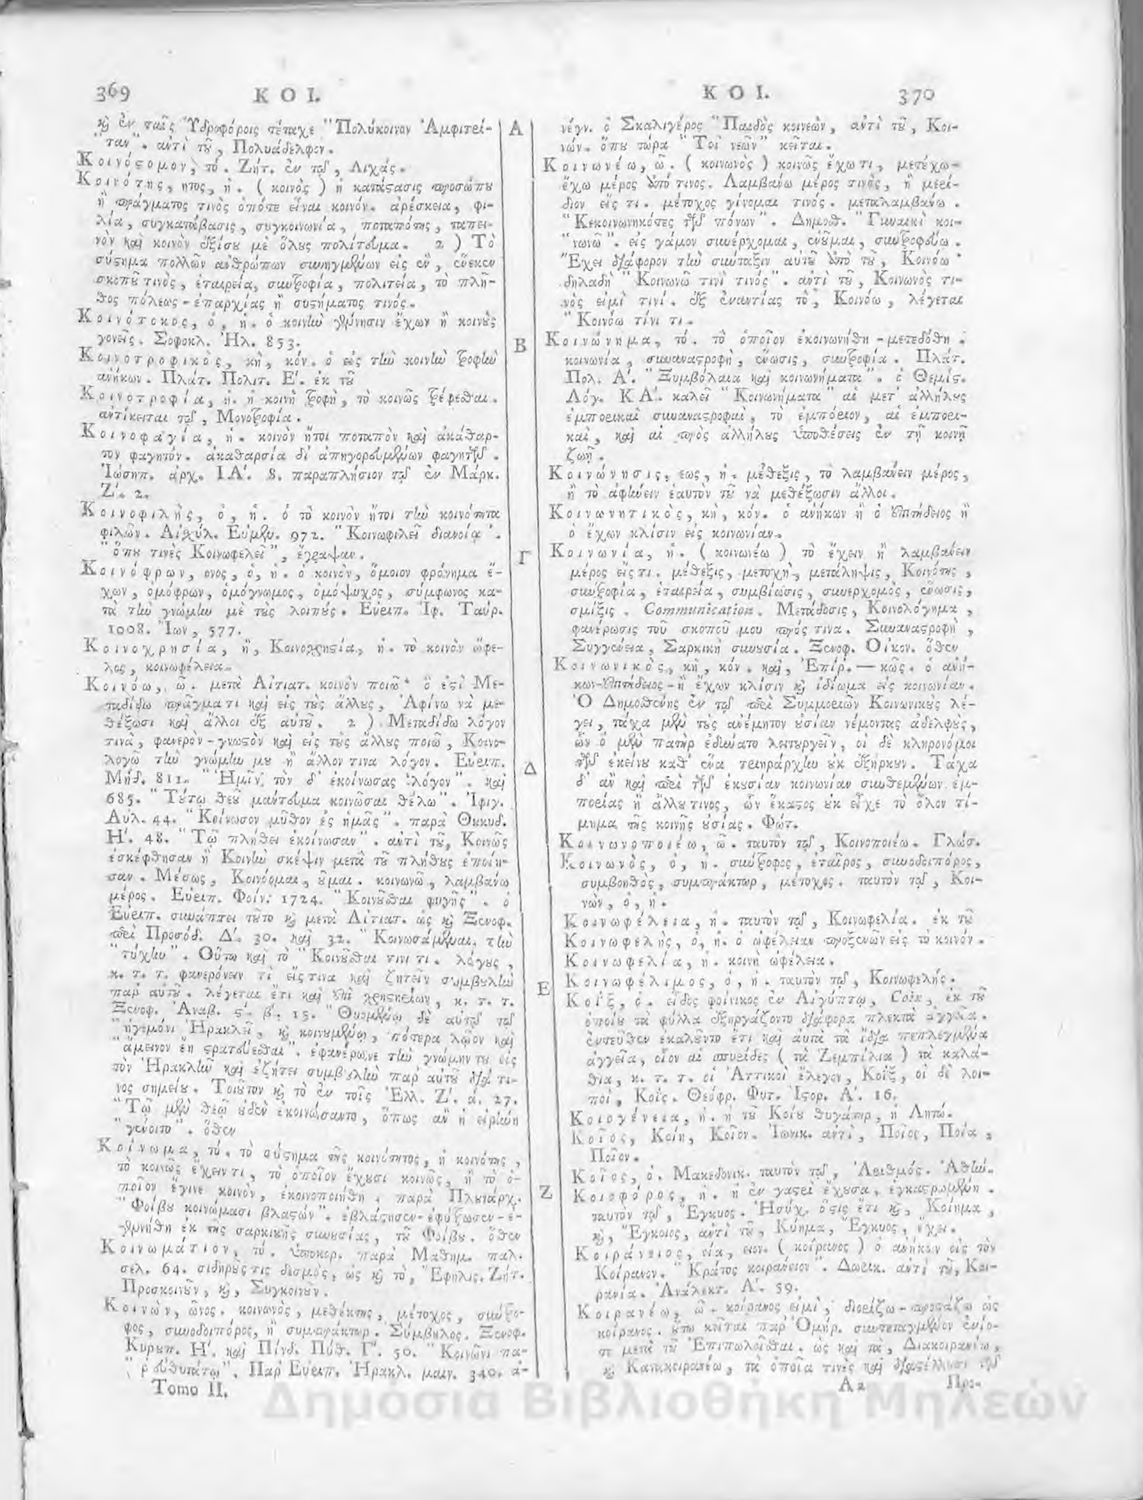 369 ΚΟΙ.
καὶ ἐν ταῖς Ὑδροφόροις τέταχε "Πολύκοινον Ἀμφιτρί-
"ταν". ἀντὶ τοῦ, Πολυάδελφον.
Κοινόστομον, τό. Ζήτ. ἐν τῷ, Λιχάς.
Κοινότης, ητος, ἡ. (κοινός) ἡ κατάστασις προσώπου
ἢ πράγματος τινὸς ὁπότε εἶναι κοινόν. ἀρέσκεια, φι-
λία, συγκατάβασις, συγκοινωνία, ποταπότης, ταπει-
νὸν καὶ κοινὸν ἐξίσου μὲ ὅλους πολίτευμα. 2) Τὸ
σύστημα πολλῶν ἀνθρώπων συνηγμένων εἰς ἓν, ἕνεκεν
σκοποῦ τινὸς, ἑταιρεία, συντροφία, πολιτεία, τὸ πλῆ-
θος πόλεως - ἐπαρχίας ἢ συστήματος τινός.
Κοινότοκος, ὁ, ἡ. ὁ κοινὴν γέννησιν ἔχων ἢ κοινοὺς
γονεῖς. Σοφοκλ. Ἠλ. 853.
Κοινοτροφικὸς, κὴ, κόν. ὁ εἰς τὴν κοινὴν τροφὴν
ἀνήκων. Πλάτ. Πολιτ. Ε΄. ἐκ τοῦ
Κοινοτροφία, ἡ. ἡ κοινὴ τροφὴ, τὸ κοινῶς τρέφεσθαι.
ἀντίκειται τῷ, Μονοτροφία.
Κοινοφαγία, ἡ. κοινὸν ἤτοι ποταπὸν καὶ ἀκάθαρ-
τον φαγητόν. ἀκαθαρσία δι' ἀπηγορευμένων φαγητῶν.
Ἰώσηπ. ἀρχ. ΙΑ΄. 8. παραπλήσιον τῷ ἐν Μάρκ.
Ζ΄. 2.
Κοινοφιλὴς, ὁ, ἡ. ὁ τὸ κοινὸν ἤτοι τὴν κοινότητα
φιλῶν. Αἰσχύλ. Εὐμέν. 972. "Κοινωφιλεῖ διανοίᾳ".
"ὅπη τινὲς Κοινωφελεῖ", ἔγραψαν.
Κοινόφρων, ονος, ὁ, ἡ. ὁ κοινὸν, ὅμοιον φρόνημα ἔ-
χων, ὁμόφρων, ὁμόγνωμος, ὁμόψυχος, σύμφωνος κα-
τὰ τὴν γνώμην μὲ τοὺς λοιπούς. Εὐριπ. Ἰφ. Ταύρ.
1008. Ἴων, 577.
Κοινοχρησία, ἡ, Κοινοχρηστία, ἡ. τὸ κοινὸν ὄφε-
λος, κοινωφέλεια.
Κοινόω, ῶ. μετὰ Αἰτιατ. κοινὸν ποιῶ· ὅ ἐστι Με-
ταδίδω πράγματι καὶ εἰς τοὺς ἄλλους, Ἀφίνω νὰ με-
θέξωσι καὶ ἄλλοι ἐξ αὐτοῦ. 2) Μεταδίδω λόγον
τινὰ, φανερὸν - γνωστὸν καὶ εἰς τοὺς ἄλλους ποιῶ, Κοινο-
λογῶ τὴν γνώμην μου ἢ ἄλλον τινα λόγον. Εὐριπ.
Μήδ. 811. "Ἡμῖν τὸν δ' ἐκοίνωσας λόγον". καὶ
685. "Τούτῳ θεοῦ μάντευμα κοινῶσαι θέλω". Ἰφιγ.
Αὐλ. 44. "Κοίνωσον μῦθον ἐς ἡμᾶς". παρὰ Θουκυδ.
Η΄. 48. "Τῷ πλήθει ἐκοίνωσαν". ἀντὶ τοῦ, Κοινῶς
ἐσκέφθησαν ἢ Κοινὴν σκέψιν μετὰ τοῦ πλήθους ἐποίη-
σαν. Μέσως, Κοινόομαι, οῦμαι. κοινωνῶ, λαμβάνω
μέρος. Εὐριπ. Φοίν. 1724. "Κοινοῦσθαι φυγῆς". ὁ
Εὐριπ. συνάπτει τοῦτο καὶ μετὰ Αἰτιατ. ὡς καὶ Ξενοφ.
περὶ Προσόδ. Δ΄. 30. καὶ 32. "Κοινωσάμεναι τὴν
"τύχην". Οὕτω καὶ τὸ "Κοινοῦσθαί τινι τι. λόγους,
κ. τ. τ. φανερόνειν τὶ εἴς τινα καὶ ζητεῖν συμβουλὴν
παρ' αὐτοῦ. λέγεται ἔτι καὶ ἐπὶ χρηστηρίων, κ. τ. τ.
Ξενοφ. Ἀναβ. ϛ΄. β΄. 15. "Θυομένῳ δὲ αὐτῷ τῷ
"ἡγεμόνι Ἡρακλεῖ, καὶ κοινουμένῳ, πότερα λῷον καὶ
"ἄμεινον εἴη στρατεύεσθαι". ἐφανέρωνε τὴν γνώμην του εἰς
τὸν Ἡρακλῆν καὶ ἐζήτει συμβουλὴν παρ' αὐτοῦ διά τι-
νος σημείου. Τοιοῦτον καὶ τὸ ἐν τοῖς Ἑλλ. Ζ΄. α. 27.
"Τῷ μὲν θεῷ οὐδὲν ἐκοινώσαντο, ὅπως ἂν ἡ εἰρήνη
"γένοιτο". ὅθεν
Κοίνωμα, τό. τὸ σύστημα τῆς κοινότητος, ἡ κοινότης,
τὸ κοινῶς ἔχειν τι, τὸ ὁποῖον ἔχουσι κοινῶς, ἢ τὸ ὁ-
ποῖον ἔγινε κοινὸν, ἐκοινοποιήθη. παρὰ Πλουτάρχ.
"Φοίβου κοινώμασι βλαστών". ἐβλάστησεν - ἐφύτρωσεν - ἐ-
γεννήθη ἐκ τῆς σαρκικῆς συνουσίας, τοῦ Φοίβου. ὅθεν
Κοινωμάτιον, τό. ὑποκορ. παρὰ Μαθημ. παλ.
σελ. 64. σιδηροῦς τις δεσμὸς, ὡς καὶ τὸ, Ἐφηλίς. Ζήτ.
Προσκοινοῦν, καὶ, Συγκοινοῦν.
Κοινὼν, ῶνος. κοινωνὸς, μεθέκτης, μέτοχος, σύντρο-
φος, συνοδοιπόρος, ἢ συμπράκτωρ. Σύμβουλος. Ξενοφ.
Κυρουπ. Η΄. καὶ Πίνδ. Πύθ. Γ΄. 50. "Κοινῶνι πα-
Παρ' Εὐριπ. Ἡρακλ. μαιν. 340. ἀ-
Tomo II.
Α
Β
Γ
Δ
Ε
Ζ
ΚΟΙ. 370
νέγν. ὁ Σκαλιγέρος "Παιδὸς κοινεών, ἀντὶ τοῦ, Κοι-
νών. ὅπου τώρα "Τοῖ νεῶν" κεῖται.
Κοινωνέω, ῶ. (κοινωνὸς) κοινῶς ἔχω τι, μετέχω -
ἔχω μέρος ἀπό τινος. Λαμβάνω μέρος τινὸς, ἢ μερί-
διον εἴς τι. μέτοχος γίνομαι τινός. μεταλαμβάνω.
"Κεκοινωνηκότες τῶν πόνων". Δημοσθ. "Γυναικὶ κοι-
"νωνῶ". εἰς γάμον συνέρχομαι, ἑνοῦμαι, συντροφεύω.
Ἔχει διάφορον τὴν σύνταξιν αὐτοῦ ἀπὸ τοῦ, Κοινόω·
δηλαδὴ "Κοινωνῶ τινί τινός". ἀντὶ τοῦ, Κοινωνὸς τι-
νός εἰμί τινί. ἐξ ἐναντίας τὸ, Κοινόω, λέγεται
"Κοινόω τίνι τι.
Κοινώνημα, τό. τὸ ὁποῖον ἐκοινωνήθη - μετεδόθη.
κοινωνία, συναναστροφὴ, ἕνωσις, συντροφία. Πλάτ.
Πολ. Α΄. "Ξυμβόλαια καὶ κοινωνήματα". ὁ Θεμίστ.
Λόγ. ΚΑ΄. καλεῖ "Κοινωνήματα" αἱ μετ' ἀλλήλους
ἐμπορικαὶ συναναστροφαὶ, τὸ ἐμπόριον, αἱ ἐμπορι-
καὶ, καὶ αἱ πρὸς ἀλλήλους ὑποθέσεις ἐν τῇ κοινῇ
ζωῇ.
Κοινώνησις, εως, ἡ. μέθεξις, τὸ λαμβάνειν μέρος,
ἢ τὸ ἀφίνειν ἑαυτὸν τοῦ νὰ μεθέξωσιν ἄλλοι.
Κοινωνητικὸς, κὴ, κόν. ὁ ἀνήκων ἢ ὁ ἐπιτήδειος ἢ
ὁ ἔχων κλίσιν εἰς κοινωνίαν.
Κοινωνία, ἡ. (κοινωνέω) τὸ ἔχειν ἢ λαμβάνειν
μέρος εἴς τι. μέθεξις, μετοχὴ, μετάληψις, Κοινότης,
συντροφία, ἑταιρεία, συμβίωσις, συνερχομὸς, ἕνωσις,
σμίξις. Communication. Μετάδοσις, Κοινολόγημα,
φανέρωσις τοῦ σκοποῦ μου πρός τινα. Συναναστροφὴ,
Συγγένεια, Σαρκικὴ συνουσία. Ξενοφ. Οἰκον. ὅθεν
Κοινωνικὸς, κὴ, κόν. καὶ, Ἐπίρ. — κῶς. ὁ ἀνή-
κων - ἐπιτήδειος - ἢ ἔχων κλίσιν καὶ ἰδίωμα εἰς κοινωνίαν.
Ὁ Δημοσθένης ἐν τῷ περὶ Συμμοριῶν Κοινωνικοὺς λέ-
γει, τάχα μὲν τοὺς ἀνέμητον οὐσίαν νέμοντας ἀδελφοὺς,
ὧν ὁ μὲν πατὴρ ἐδύνατο λειτουργεῖν, οἱ δὲ κληρονόμοι
τῶν ἐκείνου καθ' ἕνα τριηράρχειν οὐκ ἐξήρκουν. Τάχα
δ' ἂν καὶ περὶ τῶν ἑκουσίαν κοινωνίαν συνθεμένων ἐμ-
πορίας ἢ ἄλλου τινος, ὧν ἕκαστος οὐκ εἶχε τὸ ὅλον τί-
μημα τῆς κοινῆς οὐσίας. Φώτ.
Κοινωνοποιέω, ῶ. ταυτὸν τῷ, Κοινοποιέω. Γλώσ.
Κοινωνὸς, ὁ, ἡ. σύντροφος, ἑταῖρος, συνοδοιπόρος,
συμβοηθὸς, συμπράκτωρ, μέτοχος. ταυτὸν τῷ, Κοι-
νών, ὁ, ἡ.
Κοινωφέλεια, ἡ. ταυτὸν τῷ, Κοινωφελία. ἐκ τοῦ
Κοινωφελὴς, ὁ, ἡ. ὁ ὠφέλειαν προξενῶν εἰς τὸ κοινόν.
Κοινωφελία, ἡ. κοινὴ ὠφέλεια.
Κοινωφέλιμος, ὁ, ἡ. ταυτὸν τῷ, Κοινωφελής.
Κοῒξ, ὁ. εἶδος φοίνικος ἐν Αἰγύπτῳ, Coix, ἐκ τοῦ
ὁποίου τὰ φύλλα ἐξηργάζοντο διάφορα πλεκτὰ ἀγγεῖα.
ἐντεῦθεν ἐκαλοῦντο ἔτι καὶ αὐτὰ τὰ ἴδια πεπλεγμένα
ἀγγεῖα, οἷον αἱ σπυρίδες (τὰ Ζεμπίλια) τὰ καλά-
θια, κ. τ. τ. οἱ Ἀττικοὶ ἔλεγον, Κοΐξ, οἱ δὲ λοι-
ποὶ, Κοΐς. Θεόφρ. Φυτ. Ἱστορ. Α΄. 16.
Κοιογένεια, ἡ. ἡ τοῦ Κοίου θυγάτηρ, ἡ Λητώ.
Κοῖος, Κοίη, Κοῖον. Ἰωνικ. ἀντὶ, Ποῖος, Ποία,
Ποῖον.
Κοῖος, ὁ. Μακεδονικ. ταυτὸν τῷ, Ἀριθμός. Ἀθήν.
Κοιοφόρος, ἡ. ἡ ἐν γαστρὶ ἔχουσα, ἐγκαστρωμένη.
ταυτὸν τῷ, Ἔγκυος. Ἡσύχ. ὅστις ἔτι καὶ, Κοίημα,
καὶ, Ἔγκοιος, ἀντὶ τοῦ, Κύημα, Ἔγκυος, ἔχει.
Κοιράνειος, εία, ειον. (κοίρανος) ὁ ἀνήκων εἰς τὸν
Κοίρανον. "Κράτος κοιράνειον". Δωρικ. ἀντὶ τοῦ, Κοι-
ρανία. Ἀνάλεκτ. Α΄. 59.
Κοιρανέω, ῶ. κοίρανος εἰμὶ, διορίζω - προστάζω ὡς
κοίρανος. οὕτω κεῖται παρ' Ὁμήρ. συντεταγμένον ἐνίο-
τε μετὰ τοῦ Ἐπιπωλεῖσθαι. ὡς καὶ τὰ, Διακοιρανέω,
καὶ Κατακοιρανέω, τὰ ὁποῖα τινὲς καὶ διαστέλλουσι τῶν
Α2 Προ-
Δημόσια Βιβλιοθήκη Μηλεών